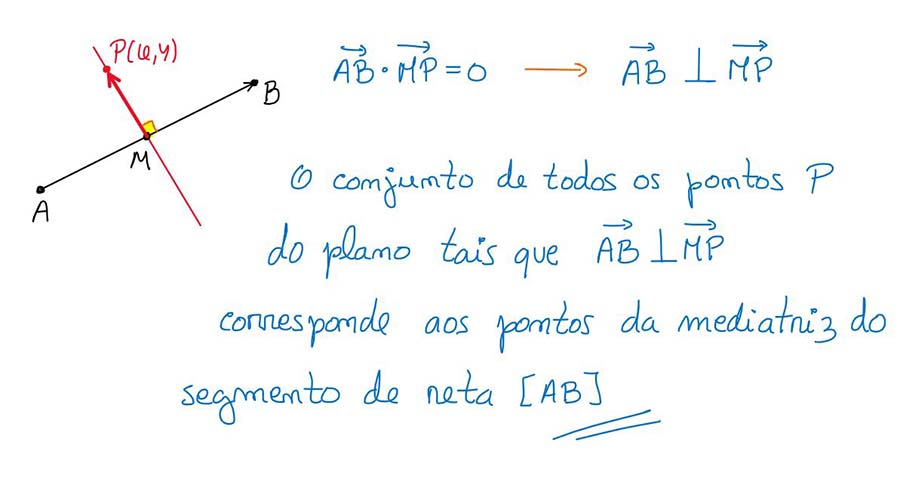 P(x,y)
B
M
A
$\overrightarrow{AB} \cdot \overrightarrow{MP} = 0 \longrightarrow \overrightarrow{AB} \perp \overrightarrow{MP}$
O conjunto de todos os pontos P
do plano tais que $\overrightarrow{AB} \perp \overrightarrow{MP}$
corresponde aos pontos da mediatriz do
segmento de reta [AB]